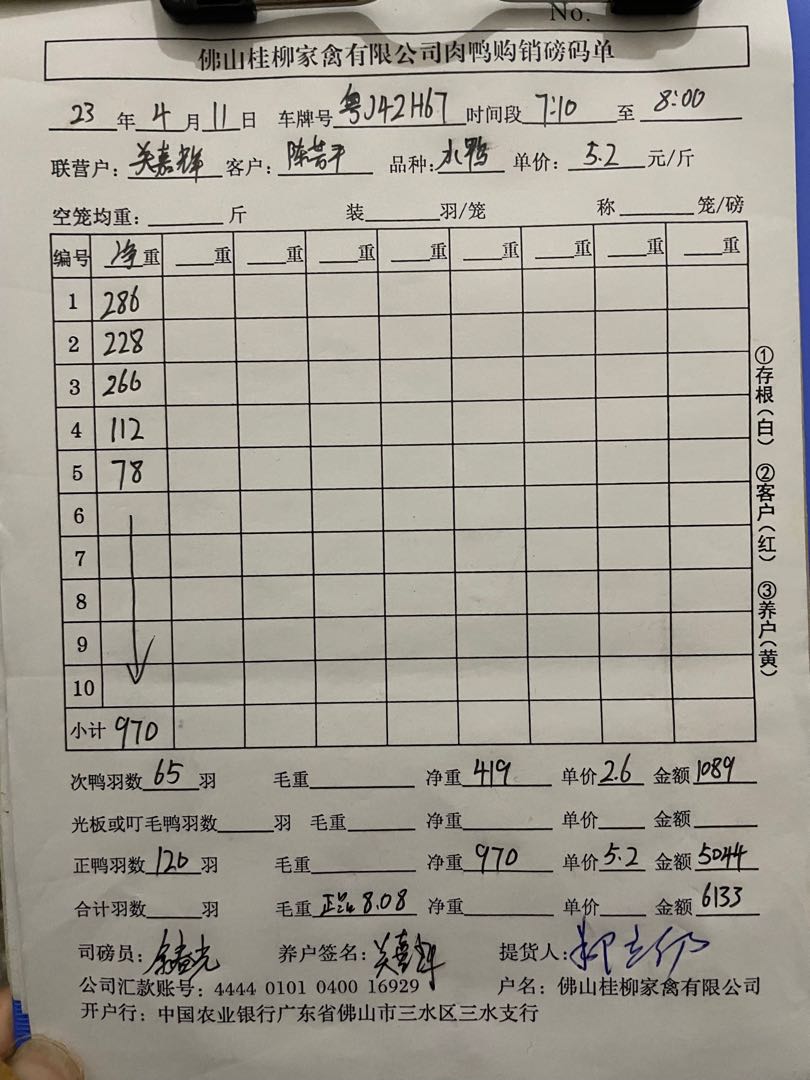 No.
佛山桂柳家禽有限公司肉鸭购销磅码单
23 年 4 月 11 日 车牌号 粤J42H67 时间段 7:10 至 8:00
联营户: 关嘉辉 客户: 陈若平 品种: 水鸭 单价: 5.2 元/斤
空笼均重: 斤 装 羽/笼 称 笼/磅
编号 净重 重 重 重 重 重 重 重 重
1 286
2 228
3 266
4 112
5 78
6
7
8
9
10
小计 970
①存根(白) ②客户(红) ③养户(黄)
次鸭羽数 65 羽 毛重 净重 419 单价 2.6 金额 1089
光板或叮毛鸭羽数 羽 毛重 净重 单价 金额
正鸭羽数 120 羽 毛重 净重 970 单价 5.2 金额 5044
合计羽数 羽 毛重 正品 8.08 净重 单价 金额 6133
司磅员: 养户签名: 关嘉辉 提货人:
公司汇款账号: 4444 0101 0400 16929 户名: 佛山桂柳家禽有限公司
开户行: 中国农业银行广东省佛山市三水区三水支行